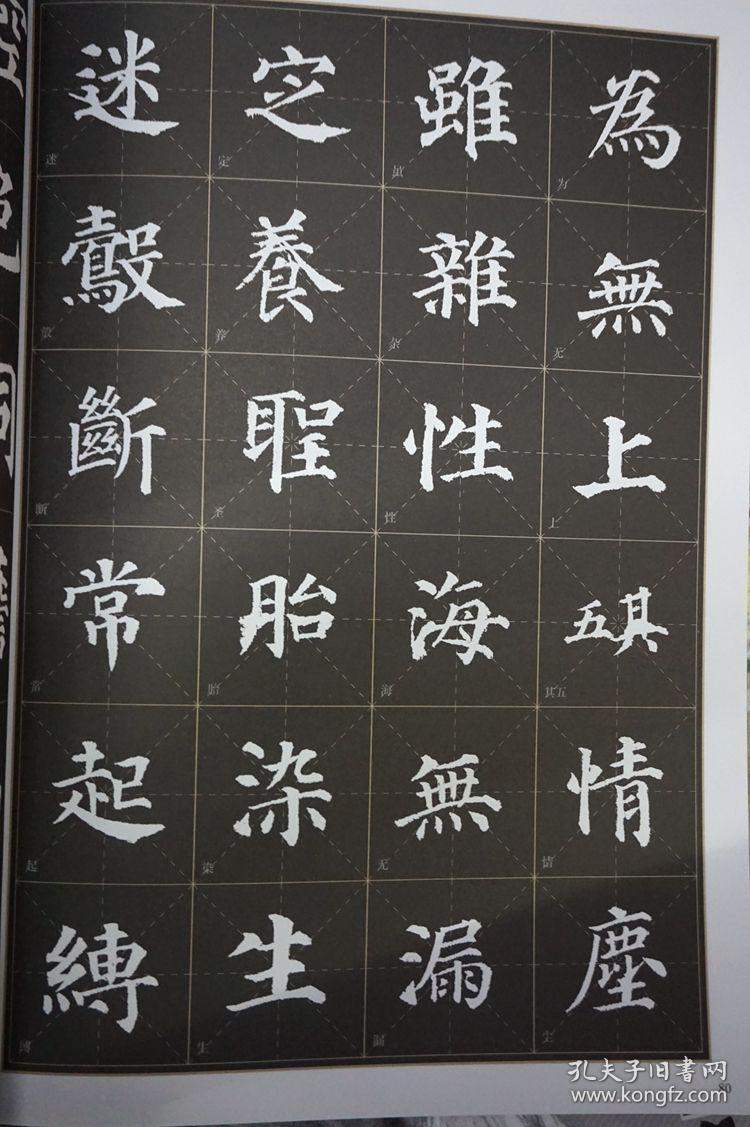 為無上其五情塵
雖雜性海無漏
定養聖胎染生
迷鷇斷常起縛
为
无
上
其五
情
尘
虽
杂
性
海
无
漏
定
养
圣
胎
染
生
迷
断
常
起
缚
80
孔夫子旧书网
www.kongfz.com